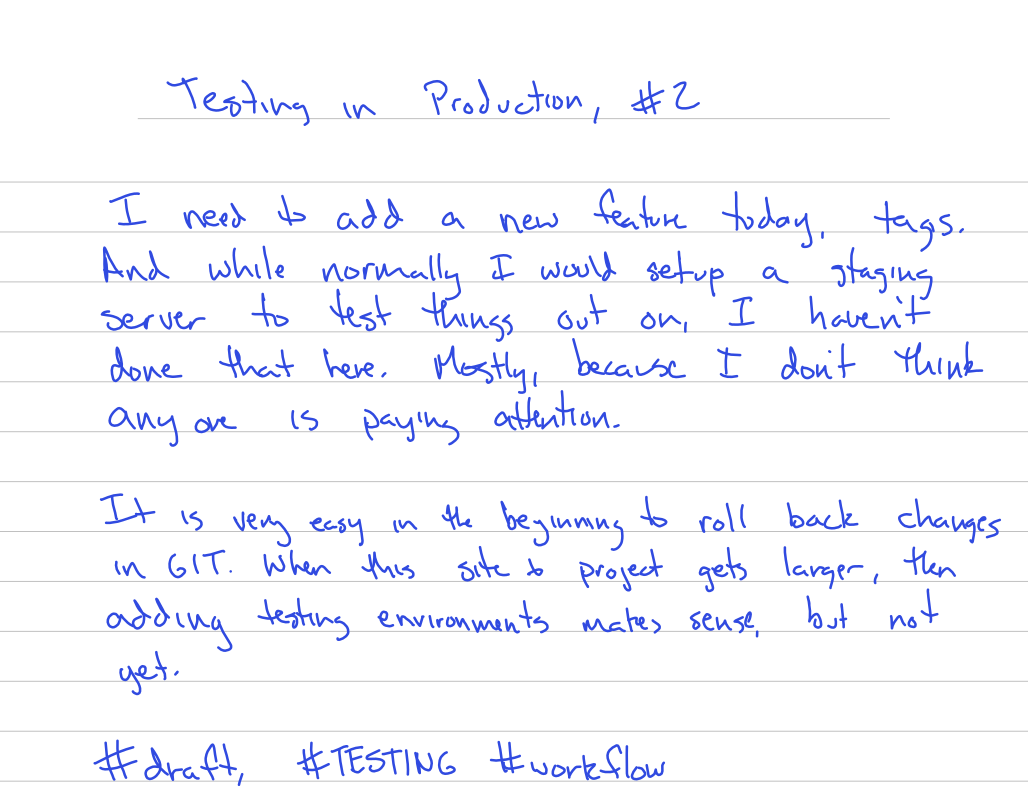 Testing in Production, #2
I need to add a new feature today, tags.
And while normally I would setup a staging
server to test things out on, I haven't
done that here. Mostly, because I don't think
any one is paying attention.
It is very easy in the beginning to roll back changes
in GIT. When this site & project gets larger, then
adding testing environments makes sense, but not
yet.
#draft, #TESTING #workflow